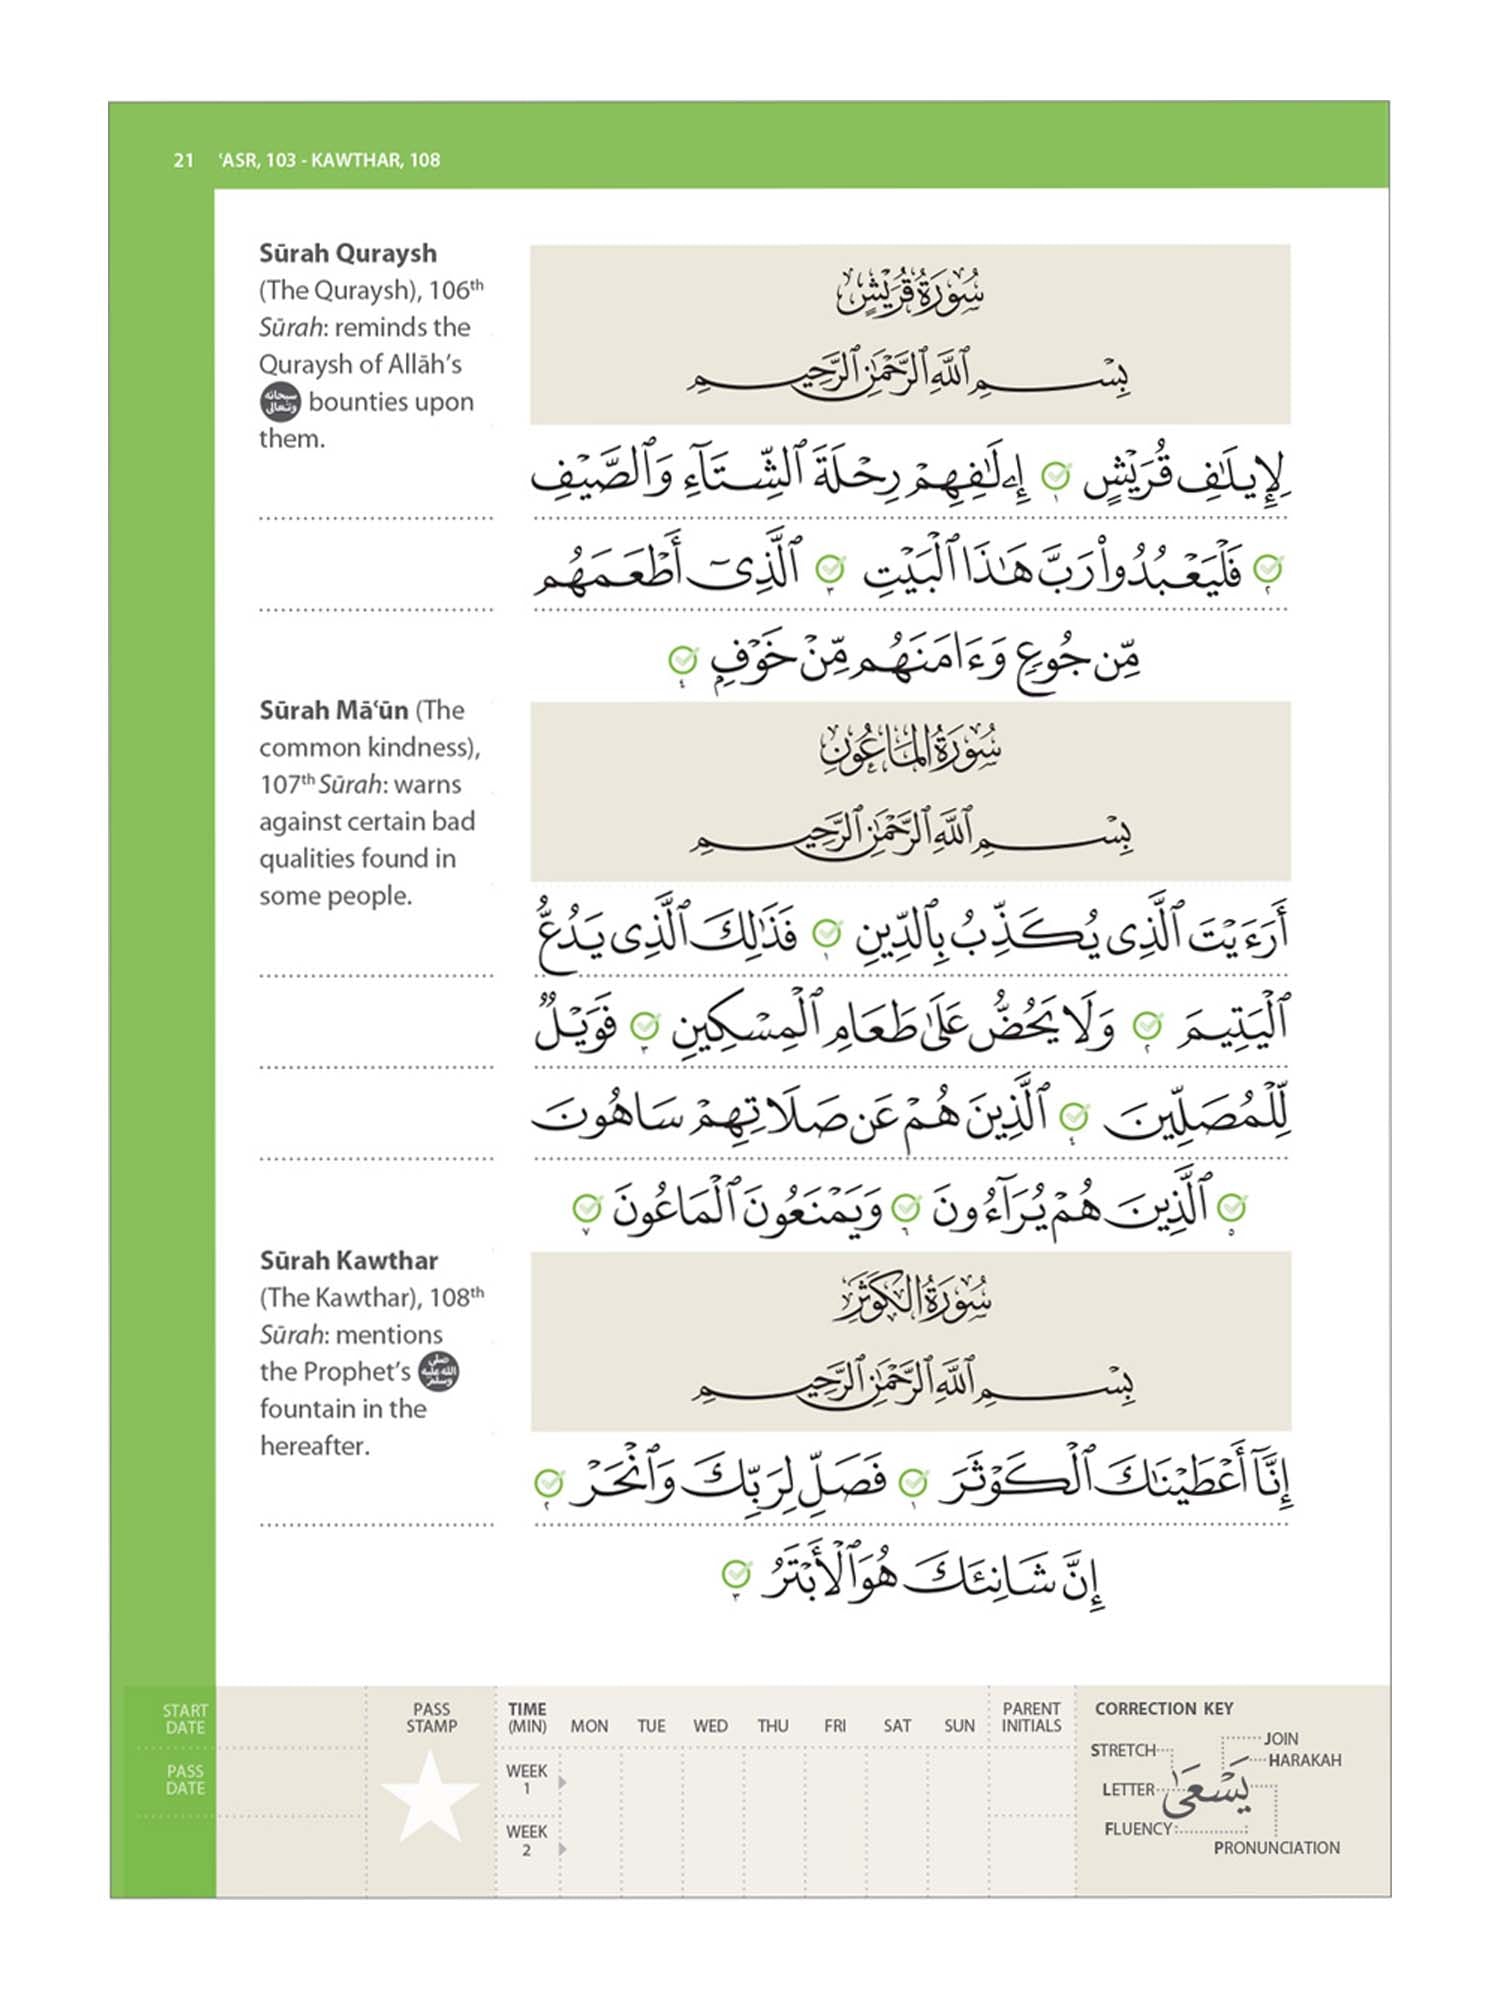 21 ʿASR, 103 - KAWTHAR, 108
Sūrah Quraysh
(The Quraysh), 106th
Sūrah: reminds the
Quraysh of Allāh's
سبحانه وتعالى bounties upon
them.
سُورَةُ قُرَيْشٍ
بِسْمِ ٱللَّهِ ٱلرَّحْمَٰنِ ٱلرَّحِيمِ
لِإِيلَٰفِ قُرَيْشٍ ١ إِۦلَٰفِهِمْ رِحْلَةَ ٱلشِّتَآءِ وَٱلصَّيْفِ
٢ فَلْيَعْبُدُوا۟ رَبَّ هَٰذَا ٱلْبَيْتِ ٣ ٱلَّذِىٓ أَطْعَمَهُم
مِّن جُوعٍ وَءَامَنَهُم مِّنْ خَوْفٍۭ ٤
Sūrah Māʿūn (The
common kindness),
107th Sūrah: warns
against certain bad
qualities found in
some people.
سُورَةُ المَاعُونِ
بِسْمِ ٱللَّهِ ٱلرَّحْمَٰنِ ٱلرَّحِيمِ
أَرَءَيْتَ ٱلَّذِى يُكَذِّبُ بِٱلدِّينِ ١ فَذَٰلِكَ ٱلَّذِى يَدُعُّ
ٱلْيَتِيمَ ٢ وَلَا يَحُضُّ عَلَىٰ طَعَامِ ٱلْمِسْكِينِ ٣ فَوَيْلٌ
لِّلْمُصَلِّينَ ٤ ٱلَّذِينَ هُمْ عَن صَلَاتِهِمْ سَاهُونَ
٥ ٱلَّذِينَ هُمْ يُرَآءُونَ ٦ وَيَمْنَعُونَ ٱلْمَاعُونَ ٧
Sūrah Kawthar
(The Kawthar), 108th
Sūrah: mentions
the Prophet's صلى الله عليه وسلم
fountain in the
hereafter.
سُورَةُ الكَوْثَرِ
بِسْمِ ٱللَّهِ ٱلرَّحْمَٰنِ ٱلرَّحِيمِ
إِنَّآ أَعْطَيْنَٰكَ ٱلْكَوْثَرَ ١ فَصَلِّ لِرَبِّكَ وَٱنْحَرْ ٢
إِنَّ شَانِئَكَ هُوَ ٱلْأَبْتَرُ ٣
START DATE
PASS DATE
PASS STAMP
TIME (MIN) MON TUE WED THU FRI SAT SUN PARENT INITIALS
WEEK 1
WEEK 2
CORRECTION KEY
JOIN
STRETCH
HARAKAH
يَسْعَىٰ
LETTER
FLUENCY
PRONUNCIATION